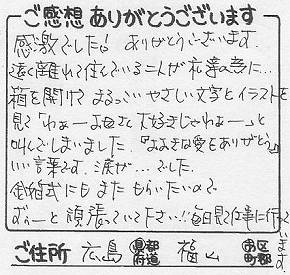 ご感想ありがとうございます
感激でした！ ありがとうございます。
遠く離れて住んでいる二人が
箱を開けて まるっこいやさしい文字とイラストを
見て「わぁーよめさん大好きじゃねぇー」と
叫んでしまいました。『よきな愛をありがとう』
いい言葉です。涙が…でした。
金婚式にもまたもらいたいので
ずぅーと頑張っていて下さい!! 毎日見て仕事に行っています。
ご住所 広島 都道府県 福山 市区町郡